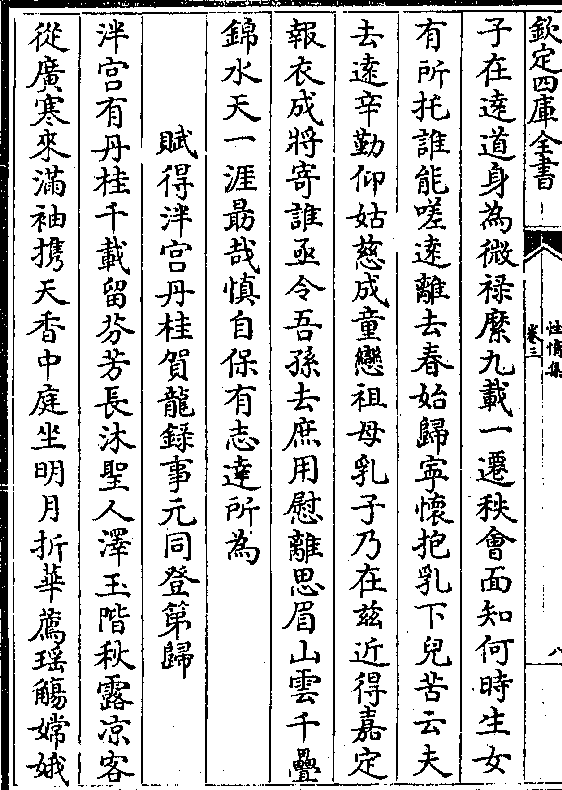 欽定四庫全書
性情集
卷三
八
子在遠道身為微祿縻九載一遷秩會面知何時生女
有所托誰能嗟遠離去春始歸寧懷抱乳下兒苦云夫
去遠辛勤仰姑慈成童戀祖母乳子乃在茲近得嘉定
報衣成將寄誰亟令吾孫去庶用慰離思眉山雲千疊
錦水天一涯勗哉慎自保有志達所為
賦得泮宫有丹桂賀龍錄事元同登第歸
泮宫有丹桂千載留芬芳長沐聖人澤玉階秋露凉客
從廣寒來滿袖携天香中庭坐明月折華薦瑶觴嫦娥